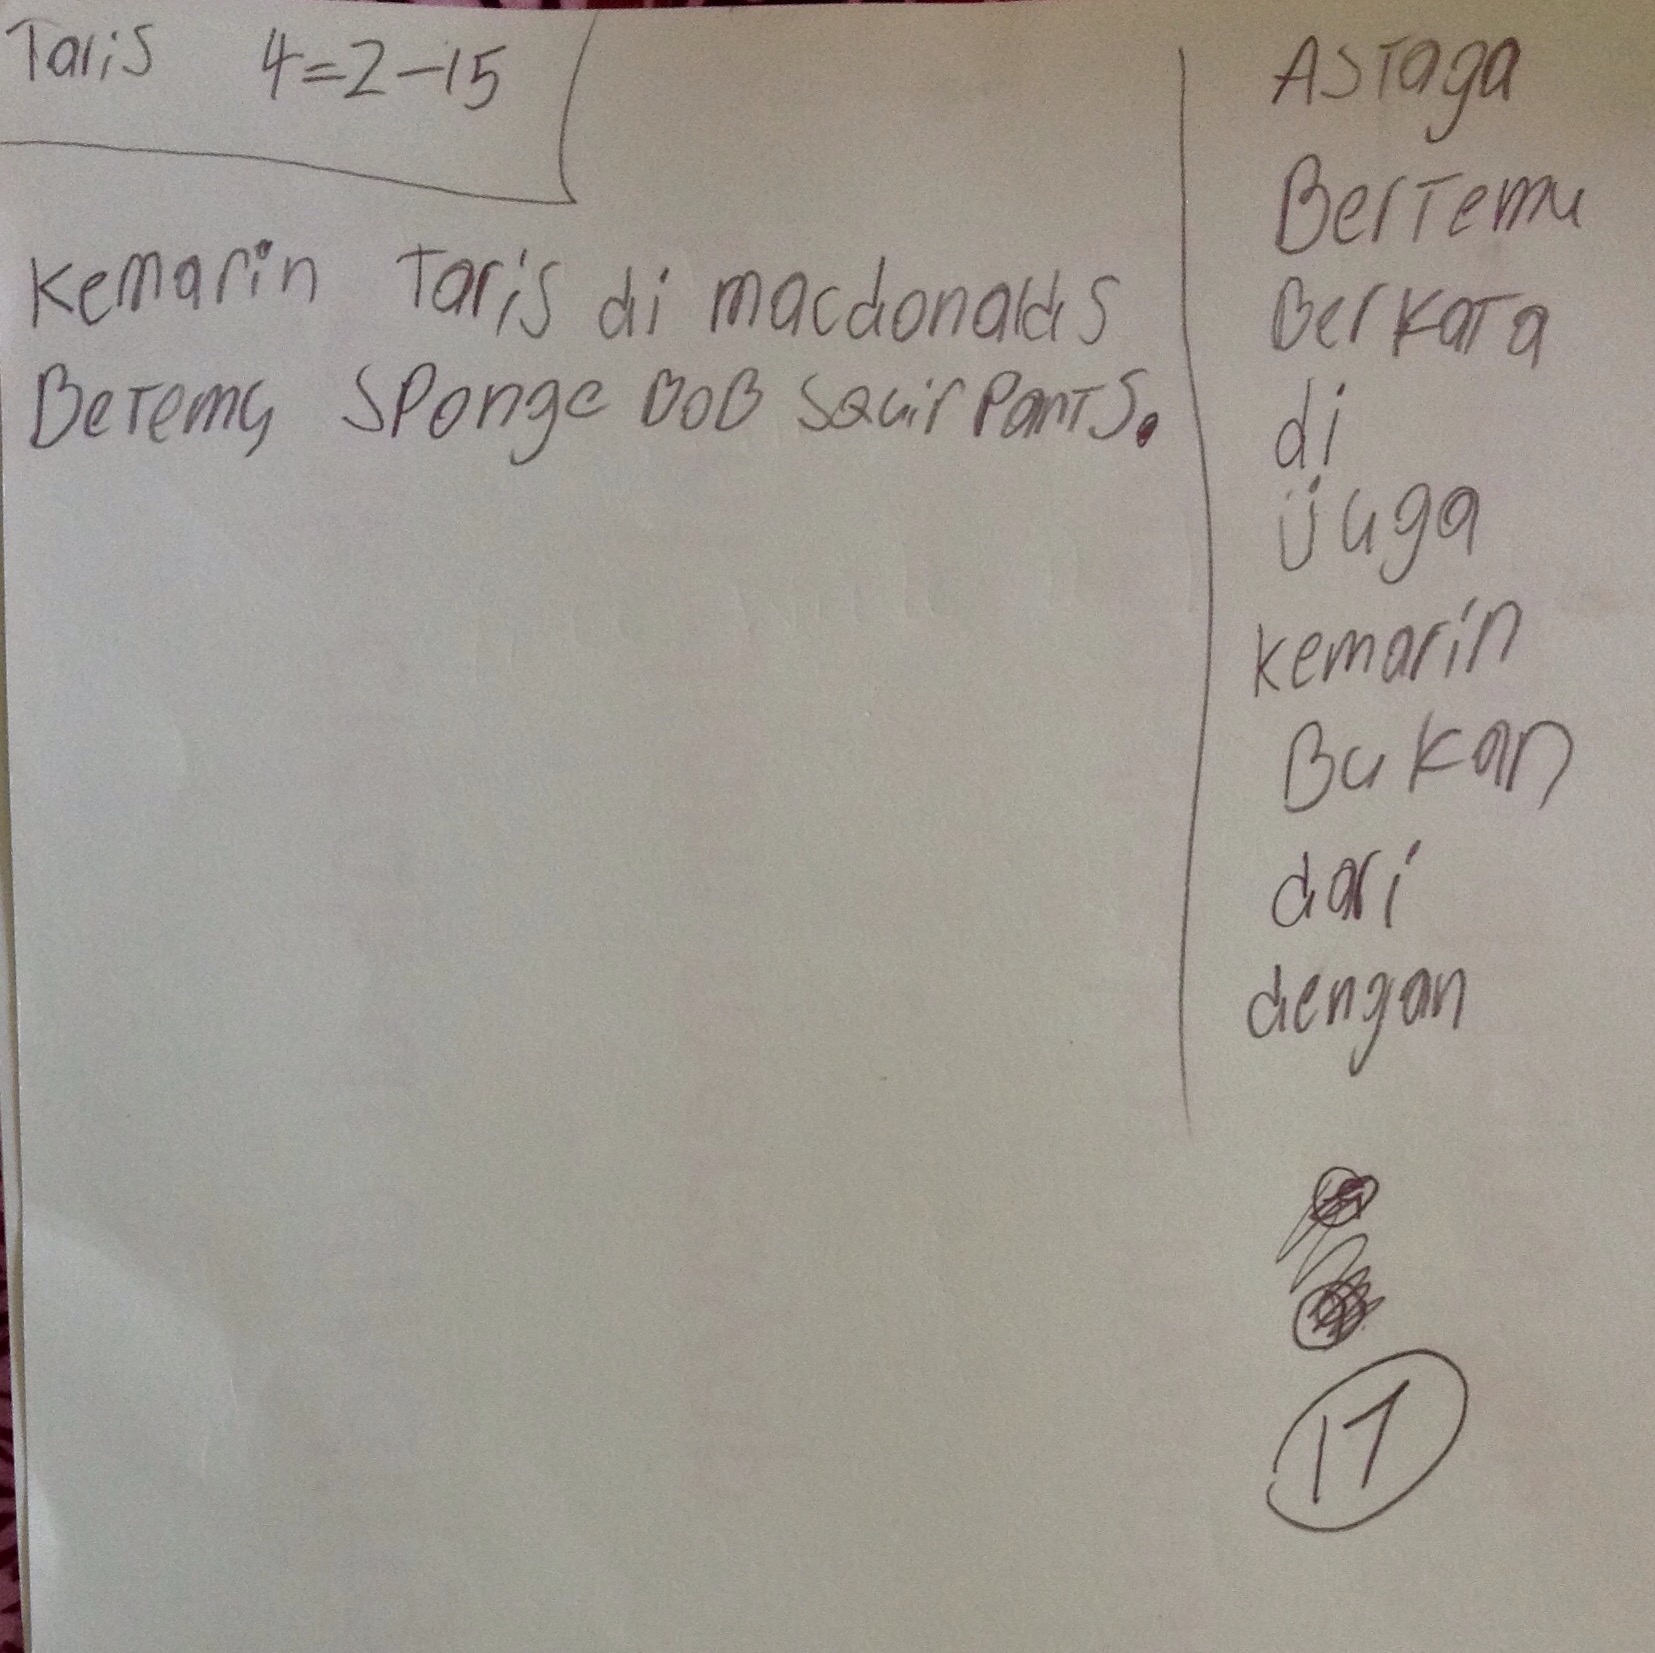 Taris 4=2-15
Kemarin Taris di macdonalds
Betemu Sponge BoB SQuir Pants.
Astaga
Bertemu
Berkata
di
juga
kemarin
Bukan
dari
dengan
17